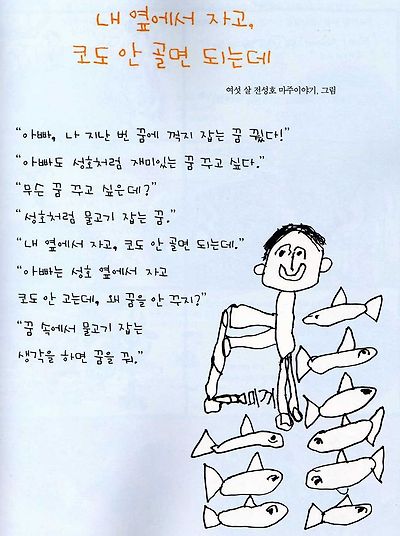 내 옆에서 자고,
코도 안 골면 되는데
여섯 살 전성호 마주이야기, 그림
“아빠, 나 지난 번 꿈에 꺽지 잡는 꿈 꿨다!”
“아빠도 성호처럼 재미있는 꿈 꾸고 싶다.”
“무슨 꿈 꾸고 싶은데?”
“성호처럼 물고기 잡는 꿈.”
“내 옆에서 자고, 코도 안 골면 되는데.”
“아빠는 성호 옆에서 자고
코도 안 고는데, 왜 꿈을 안 꾸지?”
“꿈 속에서 물고기 잡는
생각을 하면 꿈을 꿔.”
미끼